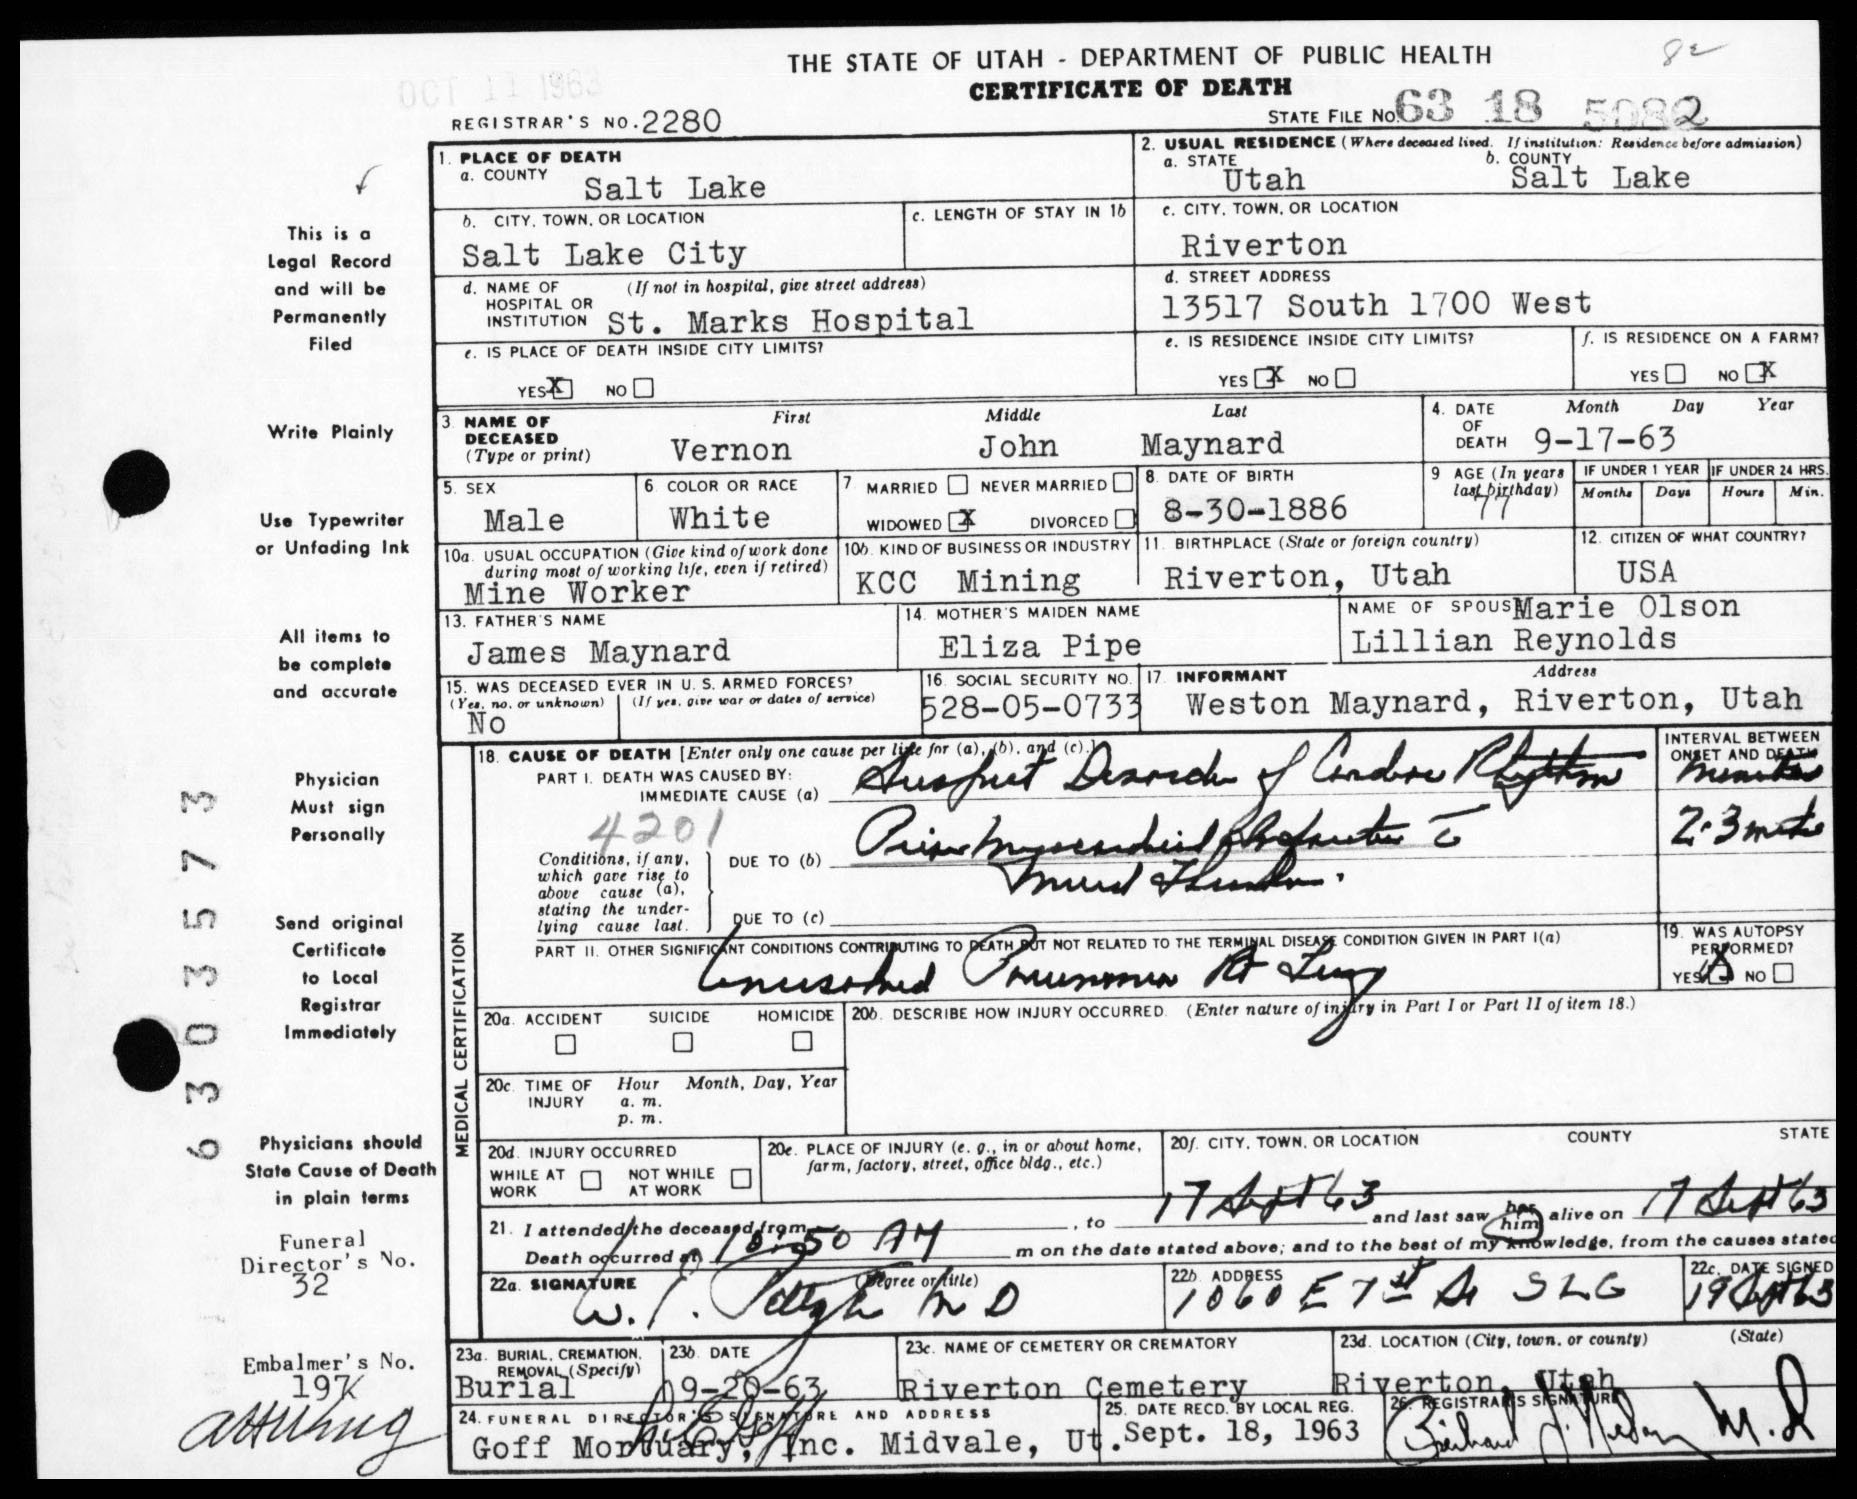 THE STATE OF UTAH - DEPARTMENT OF PUBLIC HEALTH
CERTIFICATE OF DEATH
OCT 11 1963
REGISTRAR'S NO. 2280
STATE FILE NO. 63 18 5082
1. PLACE OF DEATH
a. COUNTY Salt Lake
2. USUAL RESIDENCE (Where deceased lived. If institution: Residence before admission)
a. STATE Utah b. COUNTY Salt Lake
b. CITY, TOWN, OR LOCATION Salt Lake City
c. LENGTH OF STAY IN 1b
c. CITY, TOWN, OR LOCATION Riverton
d. NAME OF HOSPITAL OR INSTITUTION (If not in hospital, give street address) St. Marks Hospital
d. STREET ADDRESS 13517 South 1700 West
e. IS PLACE OF DEATH INSIDE CITY LIMITS? YES X NO
e. IS RESIDENCE INSIDE CITY LIMITS? YES X NO
f. IS RESIDENCE ON A FARM? YES NO X
3. NAME OF DECEASED (Type or print) First Vernon Middle John Last Maynard
4. DATE OF DEATH Month Day Year 9-17-63
5. SEX Male
6. COLOR OR RACE White
7 MARRIED NEVER MARRIED WIDOWED X DIVORCED
8. DATE OF BIRTH 8-30-1886
9 AGE (In years last birthday) 77
IF UNDER 1 YEAR Months Days
IF UNDER 24 HRS. Hours Min.
10a. USUAL OCCUPATION (Give kind of work done during most of working life, even if retired) Mine Worker
10b. KIND OF BUSINESS OR INDUSTRY KCC Mining
11. BIRTHPLACE (State or foreign country) Riverton, Utah
12. CITIZEN OF WHAT COUNTRY? USA
13. FATHER'S NAME James Maynard
14. MOTHER'S MAIDEN NAME Eliza Pipe
NAME OF SPOUS Marie Olson
Lillian Reynolds
15. WAS DECEASED EVER IN U. S. ARMED FORCES? (Yes, no, or unknown) (If yes, give war or dates of service) No
16. SOCIAL SECURITY NO. 528-05-0733
17. INFORMANT Address Weston Maynard, Riverton, Utah
MEDICAL CERTIFICATION
18. CAUSE OF DEATH [Enter only one cause per line for (a), (b), and (c).]
INTERVAL BETWEEN ONSET AND DEATH
PART I. DEATH WAS CAUSED BY:
IMMEDIATE CAUSE (a) Suspect Disorder of Cardiac Rhythm minutes
4201
Conditions, if any, which gave rise to above cause (a), stating the underlying cause last.
DUE TO (b) Prior Myocardial Infarction c̄ 2-3
Mural
DUE TO (c)
PART II. OTHER SIGNIFICANT CONDITIONS CONTRIBUTING TO DEATH BUT NOT RELATED TO THE TERMINAL DISEASE CONDITION GIVEN IN PART I(a)
Unresolved Pneumonia Rt Lung
19. WAS AUTOPSY PERFORMED? YES X NO
20a. ACCIDENT SUICIDE HOMICIDE
20b. DESCRIBE HOW INJURY OCCURRED. (Enter nature of injury in Part I or Part II of item 18.)
20c. TIME OF INJURY Hour a. m. p. m. Month, Day, Year
20d. INJURY OCCURRED WHILE AT WORK NOT WHILE AT WORK
20e. PLACE OF INJURY (e. g., in or about home, farm, factory, street, office bldg., etc.)
20f. CITY, TOWN, OR LOCATION COUNTY STATE
21. I attended the deceased from , to 17 Sept 63 and last saw her him alive on 17 Sept 63
Death occurred at 10:50 AM m on the date stated above; and to the best of my knowledge, from the causes stated
22a. SIGNATURE (Degree or title) W. M D
22b. ADDRESS 1060 E 1st So SLC
22c. DATE SIGNED 19 Sept 63
23a. BURIAL, CREMATION, REMOVAL (Specify) Burial
23b. DATE 9-20-63
23c. NAME OF CEMETERY OR CREMATORY Riverton Cemetery
23d. LOCATION (City, town, or county) (State) Riverton, Utah
24. FUNERAL DIRECTOR'S SIGNATURE AND ADDRESS
Goff Mortuary, Inc. Midvale, Ut.
25. DATE RECD. BY LOCAL REG. Sept. 18, 1963
26. REGISTRAR'S SIGNATURE M.D
This is a
Legal Record
and will be
Permanently
Filed
Write Plainly
Use Typewriter
or Unfading Ink
All items to
be complete
and accurate
Physician
Must sign
Personally
Send original
Certificate
to Local
Registrar
Immediately
Physicians should
State Cause of Death
in plain terms
Funeral
Director's No.
32
Embalmer's No.
197
6303573